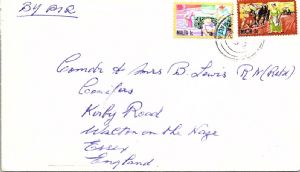 BY AIR
MALTA 1c
MALTA
Comdr & Mrs B. Lewis R.N. (Retd)
Conifers
Kirby Road
Walton on the Naze
Essex
England.